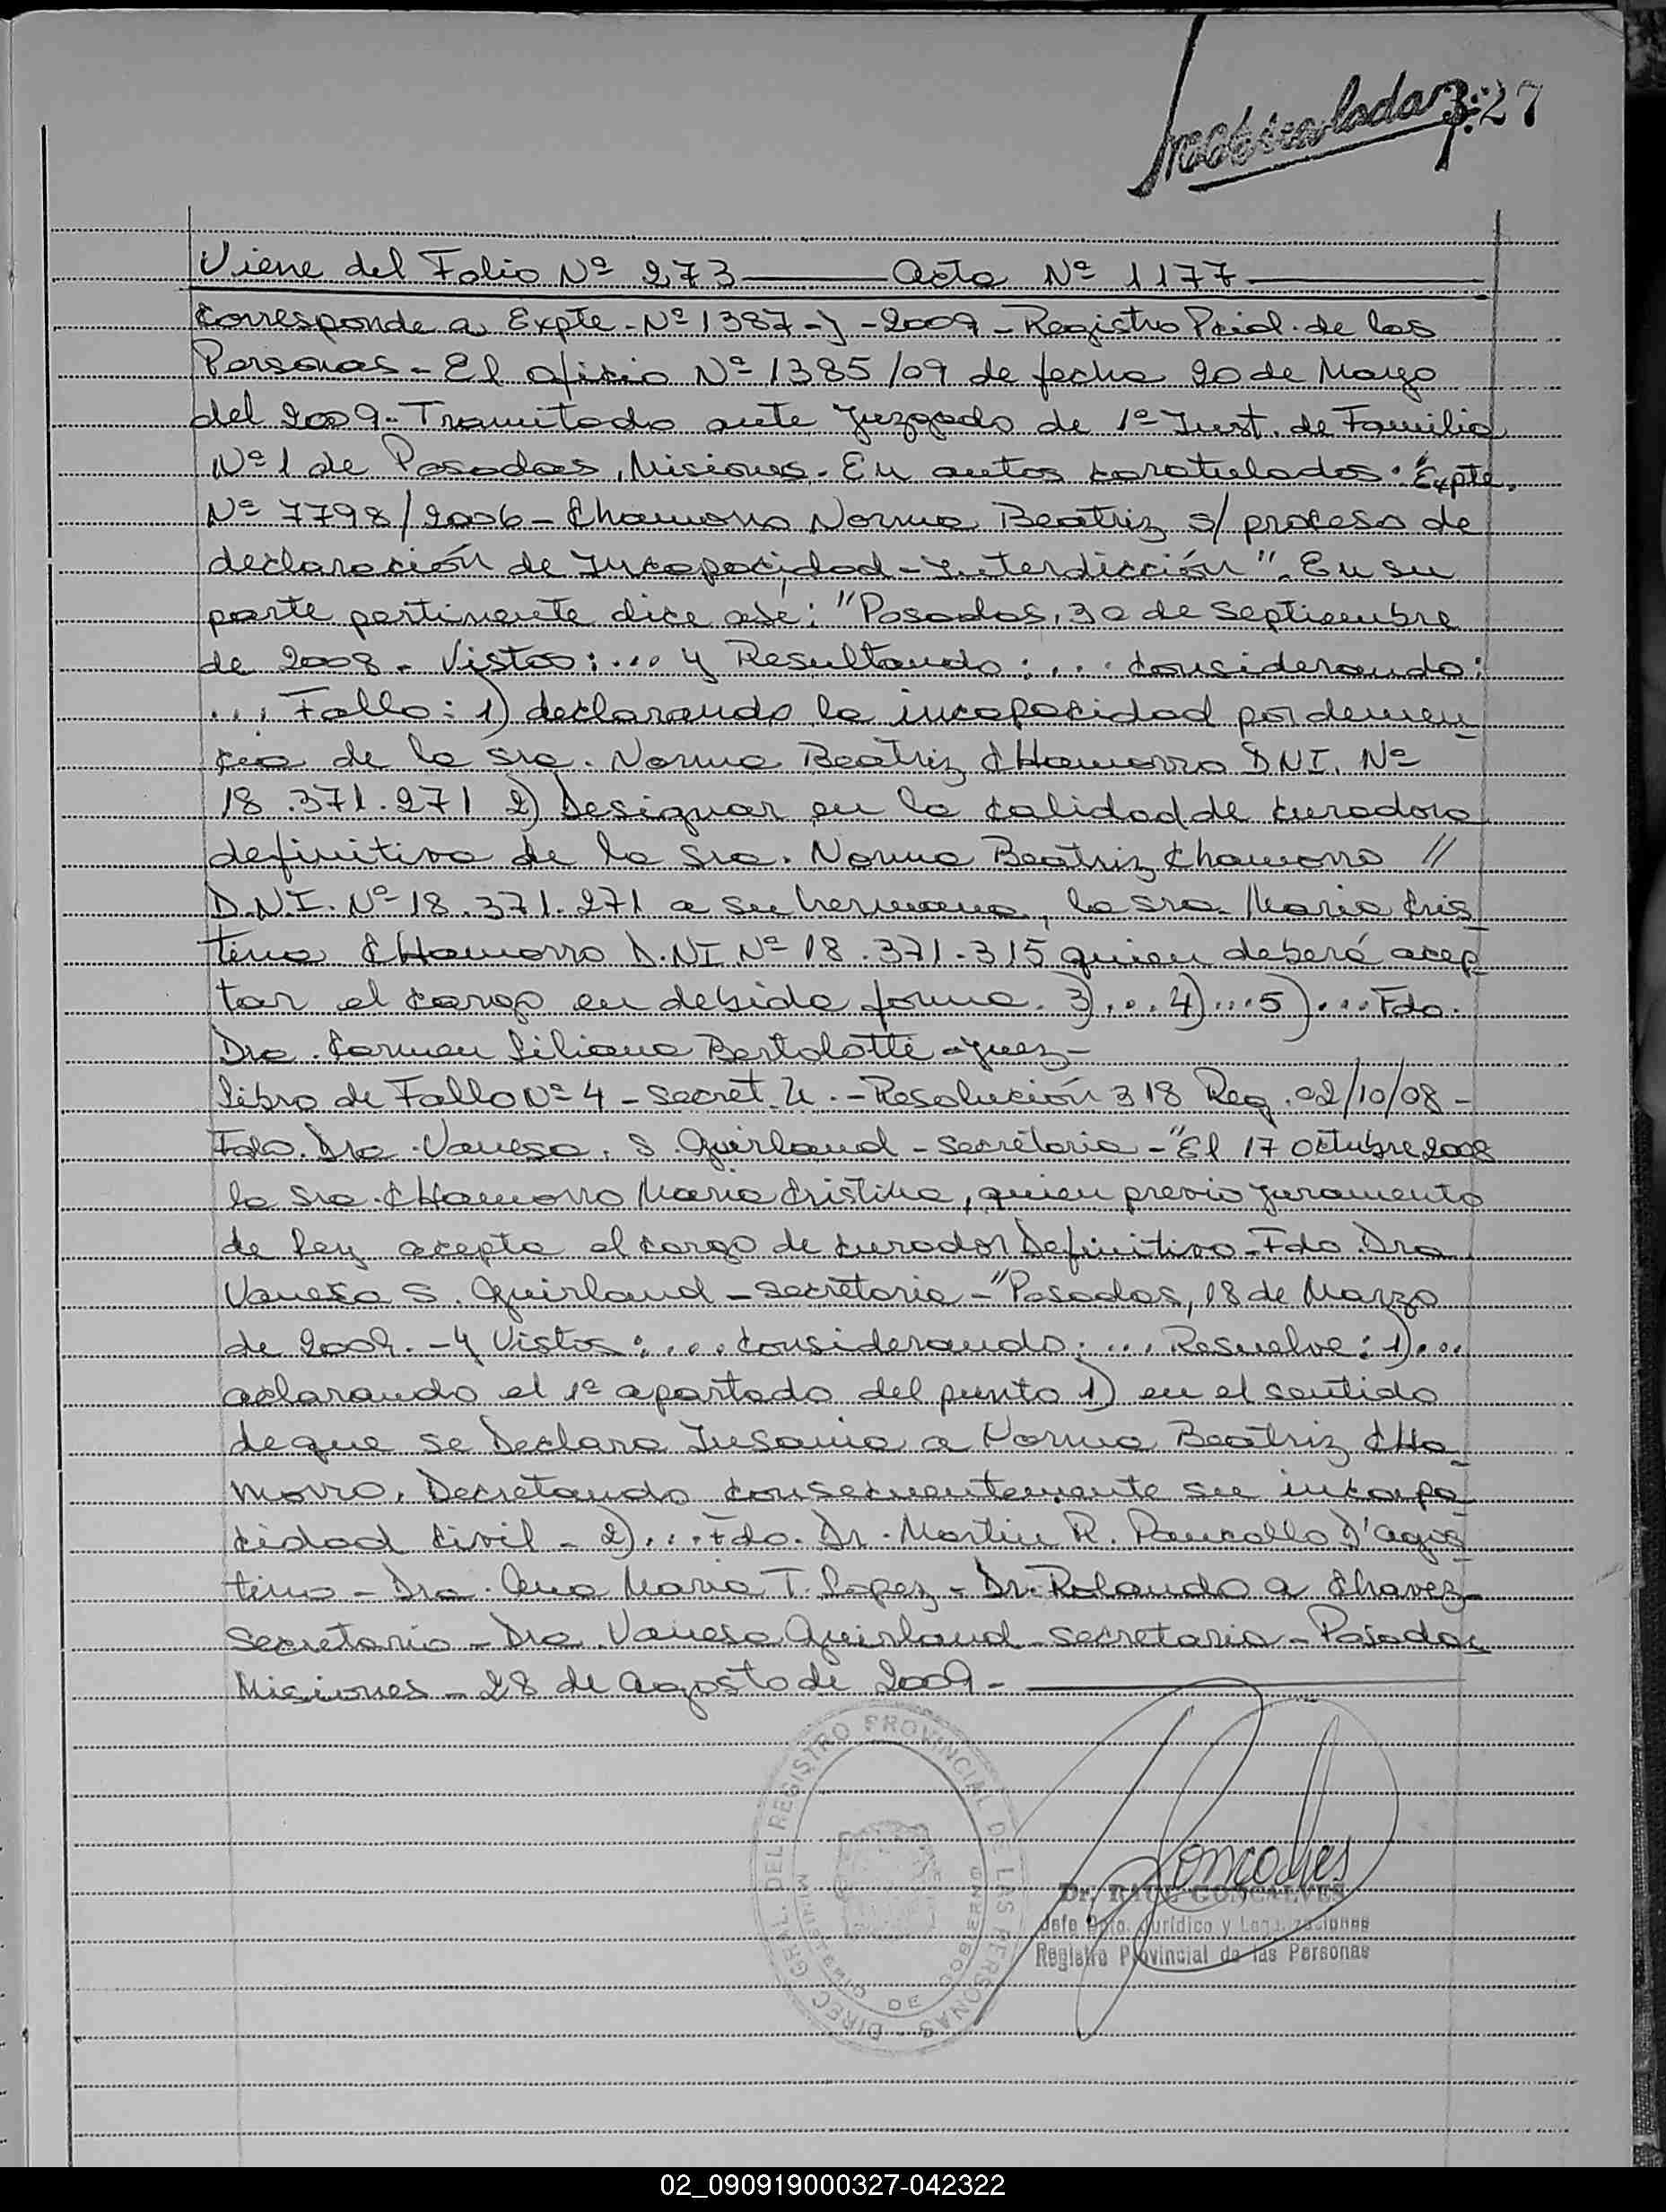 327
Viene del Folio Nº 273 — Acta Nº 1177 —
Corresponde a Expte - Nº 1387 - J - 2009 - Registro Pcial. de las
Personas - El oficio Nº 1385/09 de fecha 20 de Mayo
del 2009 - Tramitado ante Juzgado de 1º Inst. de Familia
Nº 1 de Posadas, Misiones - En autos caratulados: "Expte.
Nº 7798/2006 - Chamorro Norma Beatriz s/ proceso de
declaración de Incapacidad - Interdicción". En su
parte pertinente dice asi: "Posadas, 30 de Septiembre
de 2008 - Vistos: ... y Resultando: ... Considerando:
... Fallo: 1) declarando la incapacidad por demen-
cia de la Sra. Norma Beatriz CHamorro DNI. Nº
18.371.271 2) Designar en la calidad de curadora
definitiva de la Sra. Norma Beatriz Chamorro //
D.N.I. Nº 18.371.271 a su hermana, la Sra. Maria Cris-
tina CHamorro D.NI Nº 18.371.315 quien deberá acep-
tar el cargo en debida forma. 3)... 4)... 5)... Fdo.
Dra. Carmen Liliana Bertolotti - Juez -
Libro de Fallo Nº 4 - Secret. U. - Resolución 318 Reg. 02/10/08 -
Fdo. Dra. Vanesa. S. Guirland - Secretaria - "El 17 Octubre 2008
la Sra. CHamorro Maria Cristina, quien previo juramento
de Ley acepta el cargo de curador Definitivo - Fdo. Dra.
Vanesa S. Guirland - Secretaria - "Posadas, 18 de Marzo
de 2009. - Y Vistos: ... Considerando: ... Resuelve: 1)...
aclarando el 1º apartado del punto 1) en el sentido
de que se Declara Insania a Norma Beatriz CHa-
morro, Decretando consecuentemente su incapa-
cidad Civil - 2)... Fdo. Dr. Martin R. D'agos-
tino - Dra. Ana Maria T. Lopez - Dr. Rolando a Chavez -
Secretario - Dra. Vanesa Guirland - Secretaria - Posadas
Misiones - 28 de agosto de 2009 -
DIREC. GRAL. DEL REGISTRO PROVINCIAL DE LAS PERSONAS
MINISTERIO DE GOBIERNO
Goncalves
Dr. RAUL GONCALVES
Jefe Dpto. Jurídico y Legalizaciones
Registro Provincial de las Personas
02_090919000327-042322